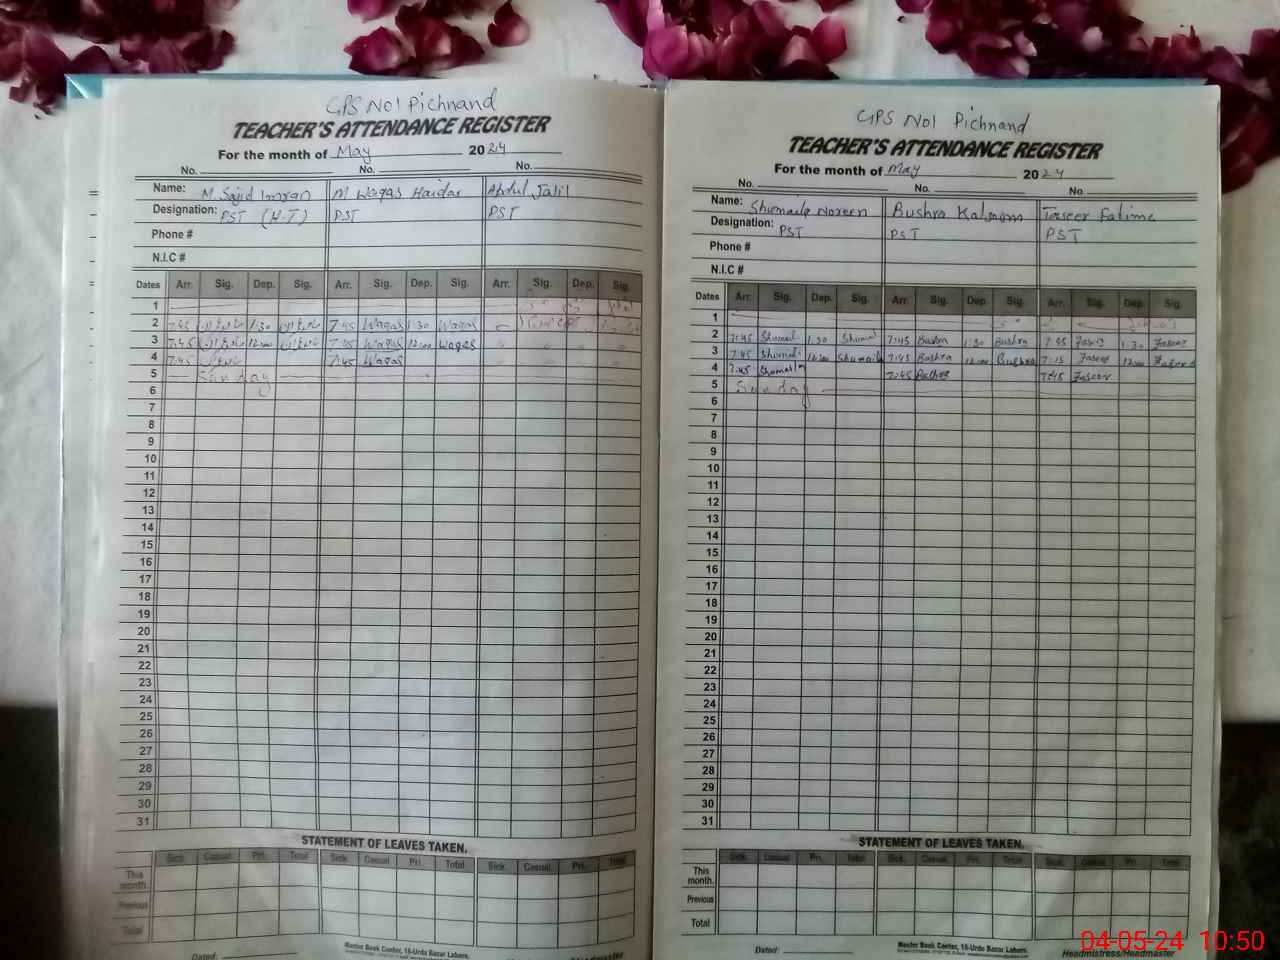 GPS No1 Pichnand
TEACHER'S ATTENDANCE REGISTER
For the month of May 2024
No. No. No.
Name: M. Sajid Imran M Waqas Haidar Abdul Jalil
Designation: PST (H.T) PST PST
Phone #
N.I.C #
Dates Arr. Sig. Dep. Sig. Arr. Sig. Dep. Sig. Arr. Sig. Dep. Sig.
1
2 7:45 1:30 7:45 Waqas 1:30 Waqas
3 7:45 12:00 7:45 Waqas 12:00 Waqas
4 7:45 7:45 Waqas
5 Sunday
6
7
8
9
10
11
12
13
14
15
16
17
18
19
20
21
22
23
24
25
26
27
28
29
30
31
STATEMENT OF LEAVES TAKEN.
Sick. Casual. Pri. Total Sick. Casual Pri. Total Sick. Casual. Pri. Total
This month.
Previous
Total
Master Book Center, 10-Urdu Bazar Lahore.
Dated: Headmistress/Headmaster
GPS No1 Pichnand
TEACHER'S ATTENDANCE REGISTER
For the month of May 2024
No. No. No.
Name: Shumaila Noreen Bushra Kalsoom Taseer Fatima
Designation: PST PST PST
Phone #
N.I.C #
Dates Arr. Sig. Dep. Sig. Arr. Sig. Dep. Sig. Arr. Sig. Dep. Sig.
1
2 7:45 Shumail 1:30 Shumail 7:45 Bushra 1:30 Bushra 7:45 Taseer 1:30 Taseer
3 7:45 Shumail 12:00 Shumaila 7:45 Bushra 12:00 Bushra 7:45 Taseer 12:00 Taseer
4 7:45 Shumaila 7:45 Bushra 7:45 Taseer
5 Sunday
6
7
8
9
10
11
12
13
14
15
16
17
18
19
20
21
22
23
24
25
26
27
28
29
30
31
STATEMENT OF LEAVES TAKEN.
Sick. Casual. Pri. Total Sick. Casual. Pri. Total Sick. Casual. Pri. Total
This month.
Previous
Total
Master Book Center, 10-Urdu Bazar Lahore.
Dated: Headmistress/Headmaster
04-05-24 10:50